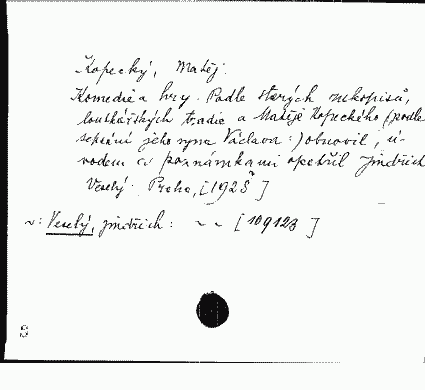 Kopecký, Matěj.
Komedie a hry. Podle starých rukopisů,
loutkářských tradic a Matěje Kopeckého (podle
sepsání jeho syna Václava:) obnovil, ú-
vodem a poznámkami opatřil Jindřich
Veselý. Praha, [1928]
Veselý, Jindřich: [109123]